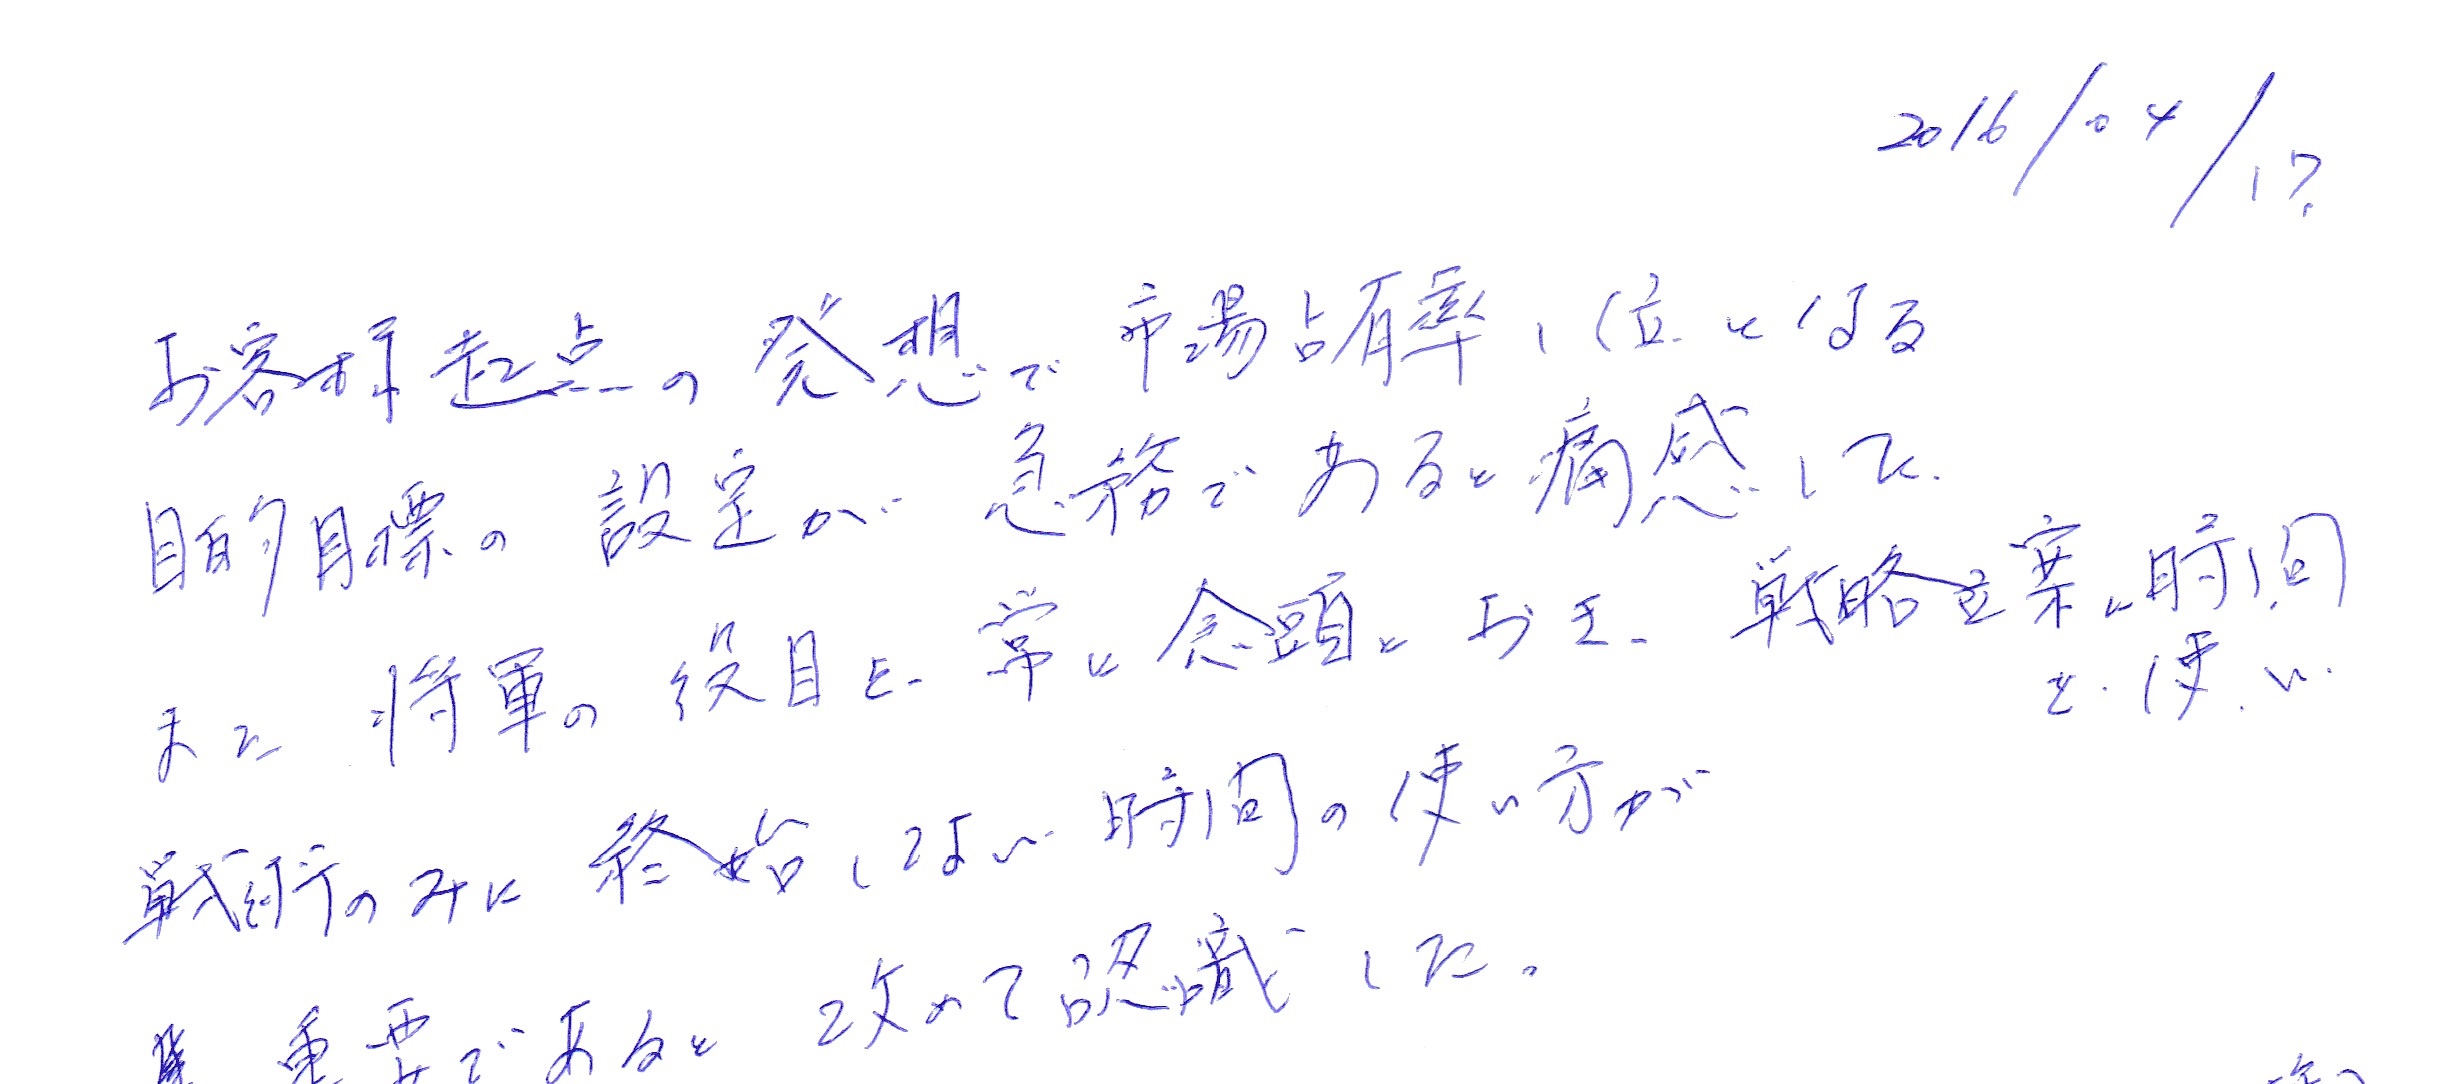 2016/04/17
お客様起点の発想で市場占有率1位となる
目的目標の設定が急務であると痛感した.
また将軍の役目を常に念頭におき、戦略立案に時間
を使い
戦術のみに終始しない時間の使い方が
重要であると改めて認識した。